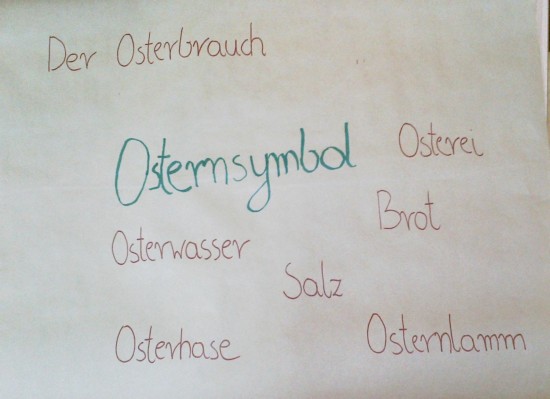 Der Osterbrauch
Osternsymbol
Osterei
Brot
Osterwasser
Salz
Osterhase
Osternlamm